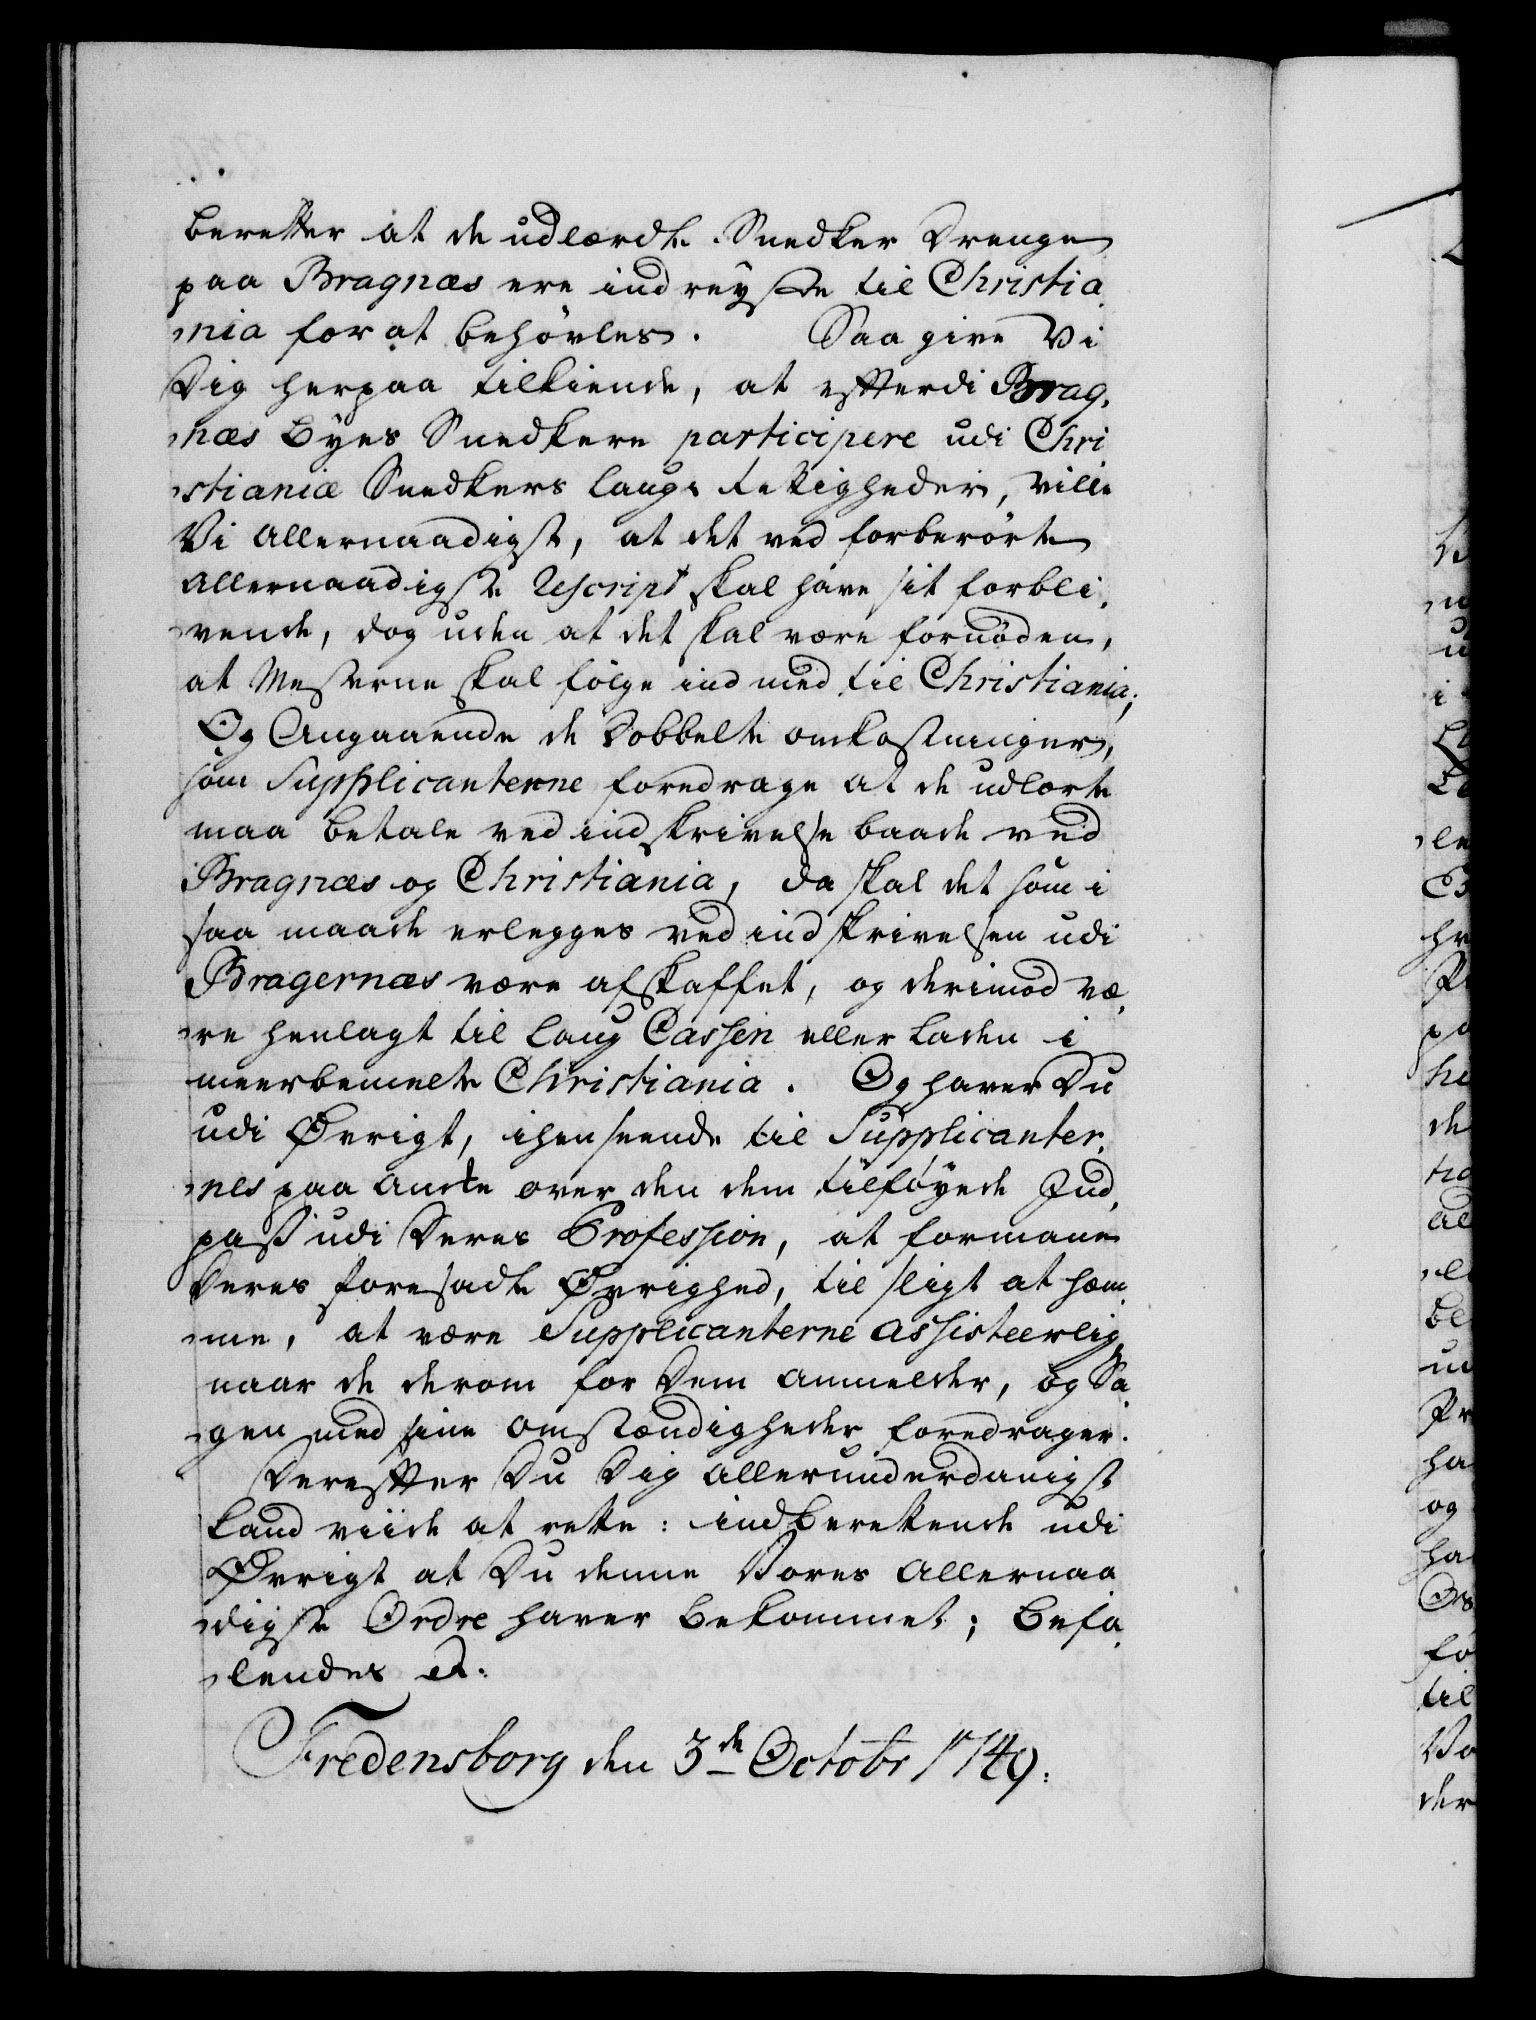 beretter at de udlærdte Snedker Drenge
paa Bragnæs ere indreyste til Christia
nia for at behövles. Saa give Vi
Dig herpaa tilkiende, at efterdi Brag,
næs Byes Snedkere participere udi Chri
stianiæ Snedkers Laugs Rettigheder, ville
Vi Allernaadigst, at det ved forberörte
Allernaadigste Rescript skal have sit forbli,
vende, dog uden at det skal være fornöden,
at Mesterne skal fölge ind med til Christiania;
Og Angaaende de Dobbelte omkostninger,
som Supplicanterne foredrage at de udlærte
maa betale ved indskrivelse baade ved
Bragnæs og Christiania, da skal det som i
saa maade erlegges ved indskrivelsen udi
Bragernæs være afskaffet, og derimod væ,
re henlagt til Laug Cassen eller Laden i
meerbemelte Christiania. Og haver Du
udi Øvrigt, ihenseende til Supplicanter,
nes paa Ancke over den dem tilföyede Ind,
pass udi Deres Profession, at formane
Deres foresadte Øvrighed, til sligt at hæm,
me, at være Supplicanterne assisteerlig,
naar de derom for Dem anmelder, og Sa,
gen med sine omstændigheder foredrager.
Derefter Du Dig allerunderdanigst
Land viide at rette: indberettende udi
Øvrigt at Du denne Vores Allernaa
digste Ordre haver bekommet; Befa,
lendes etc.
Fredensborg den 3de Octobr 1749.